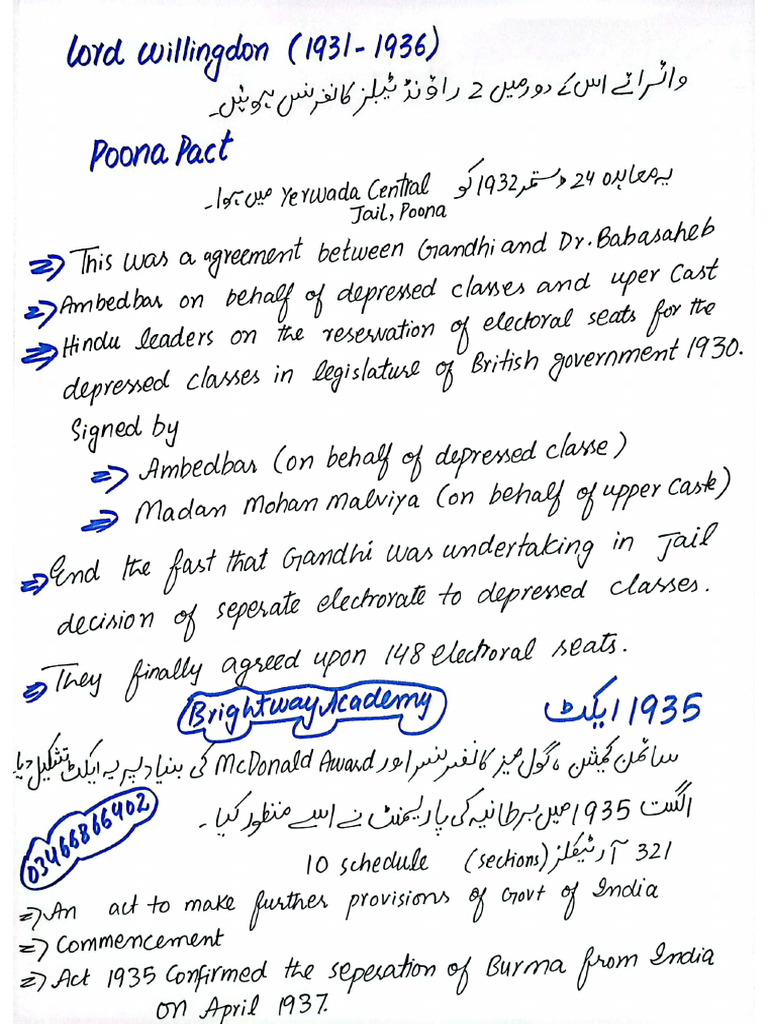 Lord Willingdon (1931-1936)
وائسرائے اس کے دور میں 2 راؤنڈ ٹیبلز کانفرنس ہوئیں۔
Poona Pact
یہ معاہدہ 24 ستمبر 1932 کو Yerwada Central میں ہوا۔
Jail, Poona
⇒ This was a agreement between Gandhi and Dr. Babasaheb
⇒ Ambedbar on behalf of depressed classes and uper Cast
⇒ Hindu leaders on the reservation of electoral seats for the
depressed classes in legislature of British government 1930.
Signed by
⇒ Ambedbar (on behalf of depressed classe)
⇒ Madan Mohan Malviya (on behalf of upper caste)
⇒ End the fast that Gandhi was undertaking in Jail
decision of seperate electrovate to depressed classes.
⇒ They finally agreed upon 148 electroral seats.
Brightway Academy
1935 ایکٹ
سائمن کمیشن، گول میز کانفرنس اور McDonald Award کی بنیاد پر یہ ایکٹ تشکیل دیا
اگست 1935 میں برطانیہ کی پارلیمنٹ نے اسے منظور کیا۔
03466866402
321 آرٹیکلز (sections) 10 schedule
⇒ An act to make further provisions of Govt of India
⇒ Commencement
⇒ Act 1935 Confirmed the seperation of Burma from India
on April 1937.